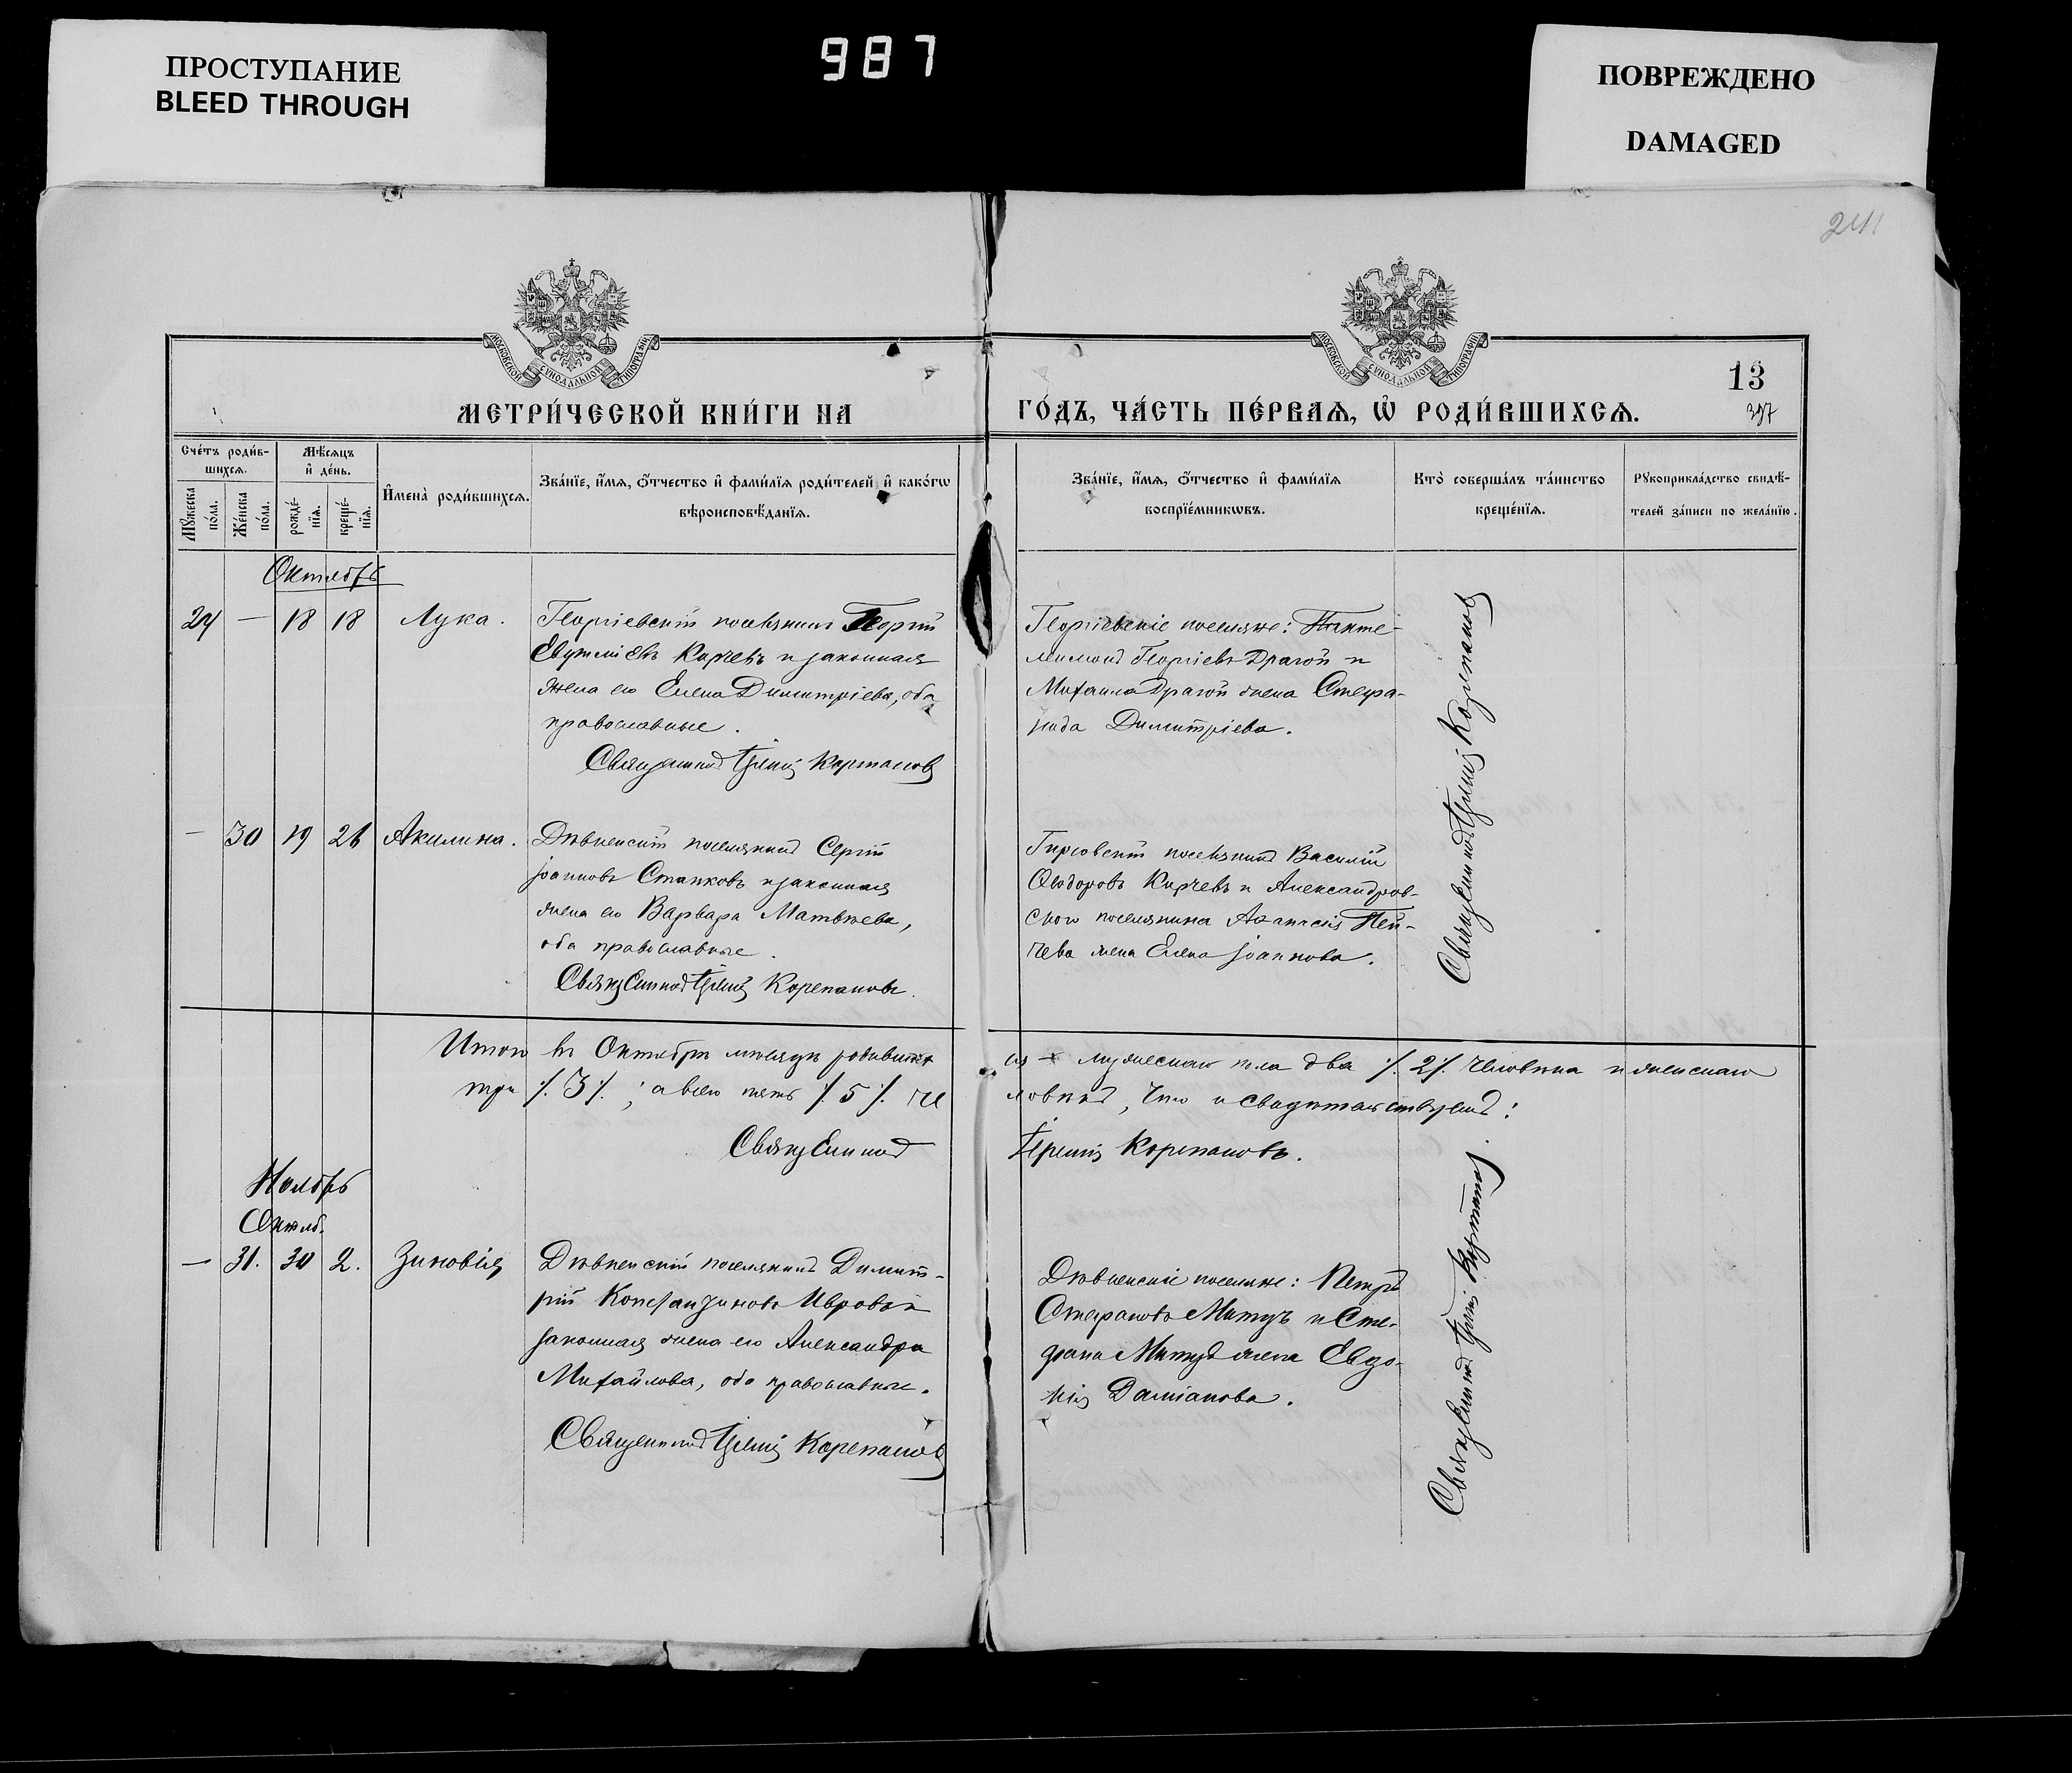 ПРОСТУПАНИЕ
BLEED THROUGH
987
ПОВРЕЖДЕНО
DAMAGED
241
МОСКОВСКОЙ СУНОДАЛЬНОЙ ТИПОГРАФІИ
МОСКОВСКОЙ СУНОДАЛЬНОЙ ТИПОГРАФІИ
13
397
МЕТРИ́ЧЕСКОЙ КНИ́ГИ НА
ГО́ДЪ, ЧА́СТЬ ПЕ́РВАѦ, Ѡ҆ РОДИ́ВШИХСѦ.
Сче́тъ роди́в-
шихсѧ.
Мѹ́жеска
по́ла.
Же́нска
по́ла.
Мѣ́сѧцъ
и҆ де́нь.
рожде́-
нїѧ.
креще́-
нїѧ.
И҆мена̀ роди́вшихсѧ.
Зва́нїе, и҆́мѧ, ѻ҆́тчество и҆ фами́лїѧ роди́телей и҆ како́гѡ
вѣроисповѣ́данїѧ.
Зва́нїе, и҆́мѧ, ѻ҆́тчество и҆ фами́лїѧ
воспрїе́мникѡвъ.
Кто̀ соверша́лъ та́инство
креще́нїѧ.
Рѹкоприкла́дство свидѣ́-
телей за́писи по жела́нїю.
Октябрь
24 — 18 18 Лука.
Георгіевскій поселянинъ Георгій
Евѳиміевъ Кирчевъ и законная
жена его Елена Димитріева, оба
православные.
Священникъ Іереміѧ Корепановъ
Георгіевскіе поселяне: Панте-
леимонъ Георгіевъ Драгой и
Михаила Драгой жена Стефа-
нида Димитріева.
Священникъ Іереміѧ Корепановъ
— 30 19 26 Акилина.
Дѣвненскій поселянинъ Сергій
Іоанновъ Станковъ и законная
жена его Варвара Матвѣева,
оба православные.
Священникъ Іереміѧ Корепановъ.
поселянинъ Василій
Ѳеодоровъ Кирчевъ и Александров-
скаго поселянина Аѳанасія Пей-
чева жена Елена Іоаннова.
Итого въ Октябрѣ мѣсяцѣ родивших
ся — мужескаго пола два /. 2 /. человѣка и женскаго
три /. 3 /. ; а всего пять /. 5 /. че
ловѣкъ, что и свидѣтельствуемъ:
Священникъ
Іереміѧ Корепановъ.
Ноябрь
Октяб.
— 31. 30 2. Зиновія
Дѣвненскій поселянинъ Димит-
рій Константиновъ и
законная жена его Александра
Михайлова, оба православные.
Священникъ Іереміѧ Корепановъ
Дѣвненскіе поселяне: Петръ
Стефановъ Митуъ и Сте-
фана жена Евдо-
кія Даміанова.
Священникъ Іереміѧ Корепановъ.